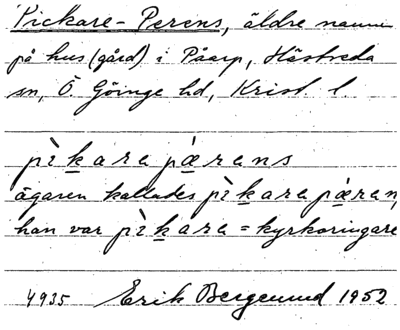 Pickare-Perens, äldre namn
på hus (gård) i Påarp, Hästveda
sn, Ö. Göinge hd, Krist. l.
pìkara pæ̀rans
ägaren kallades pìkara pæ̀ran,
han var pìkara = kyrkoringare
4935 Erik Bergelund 1952